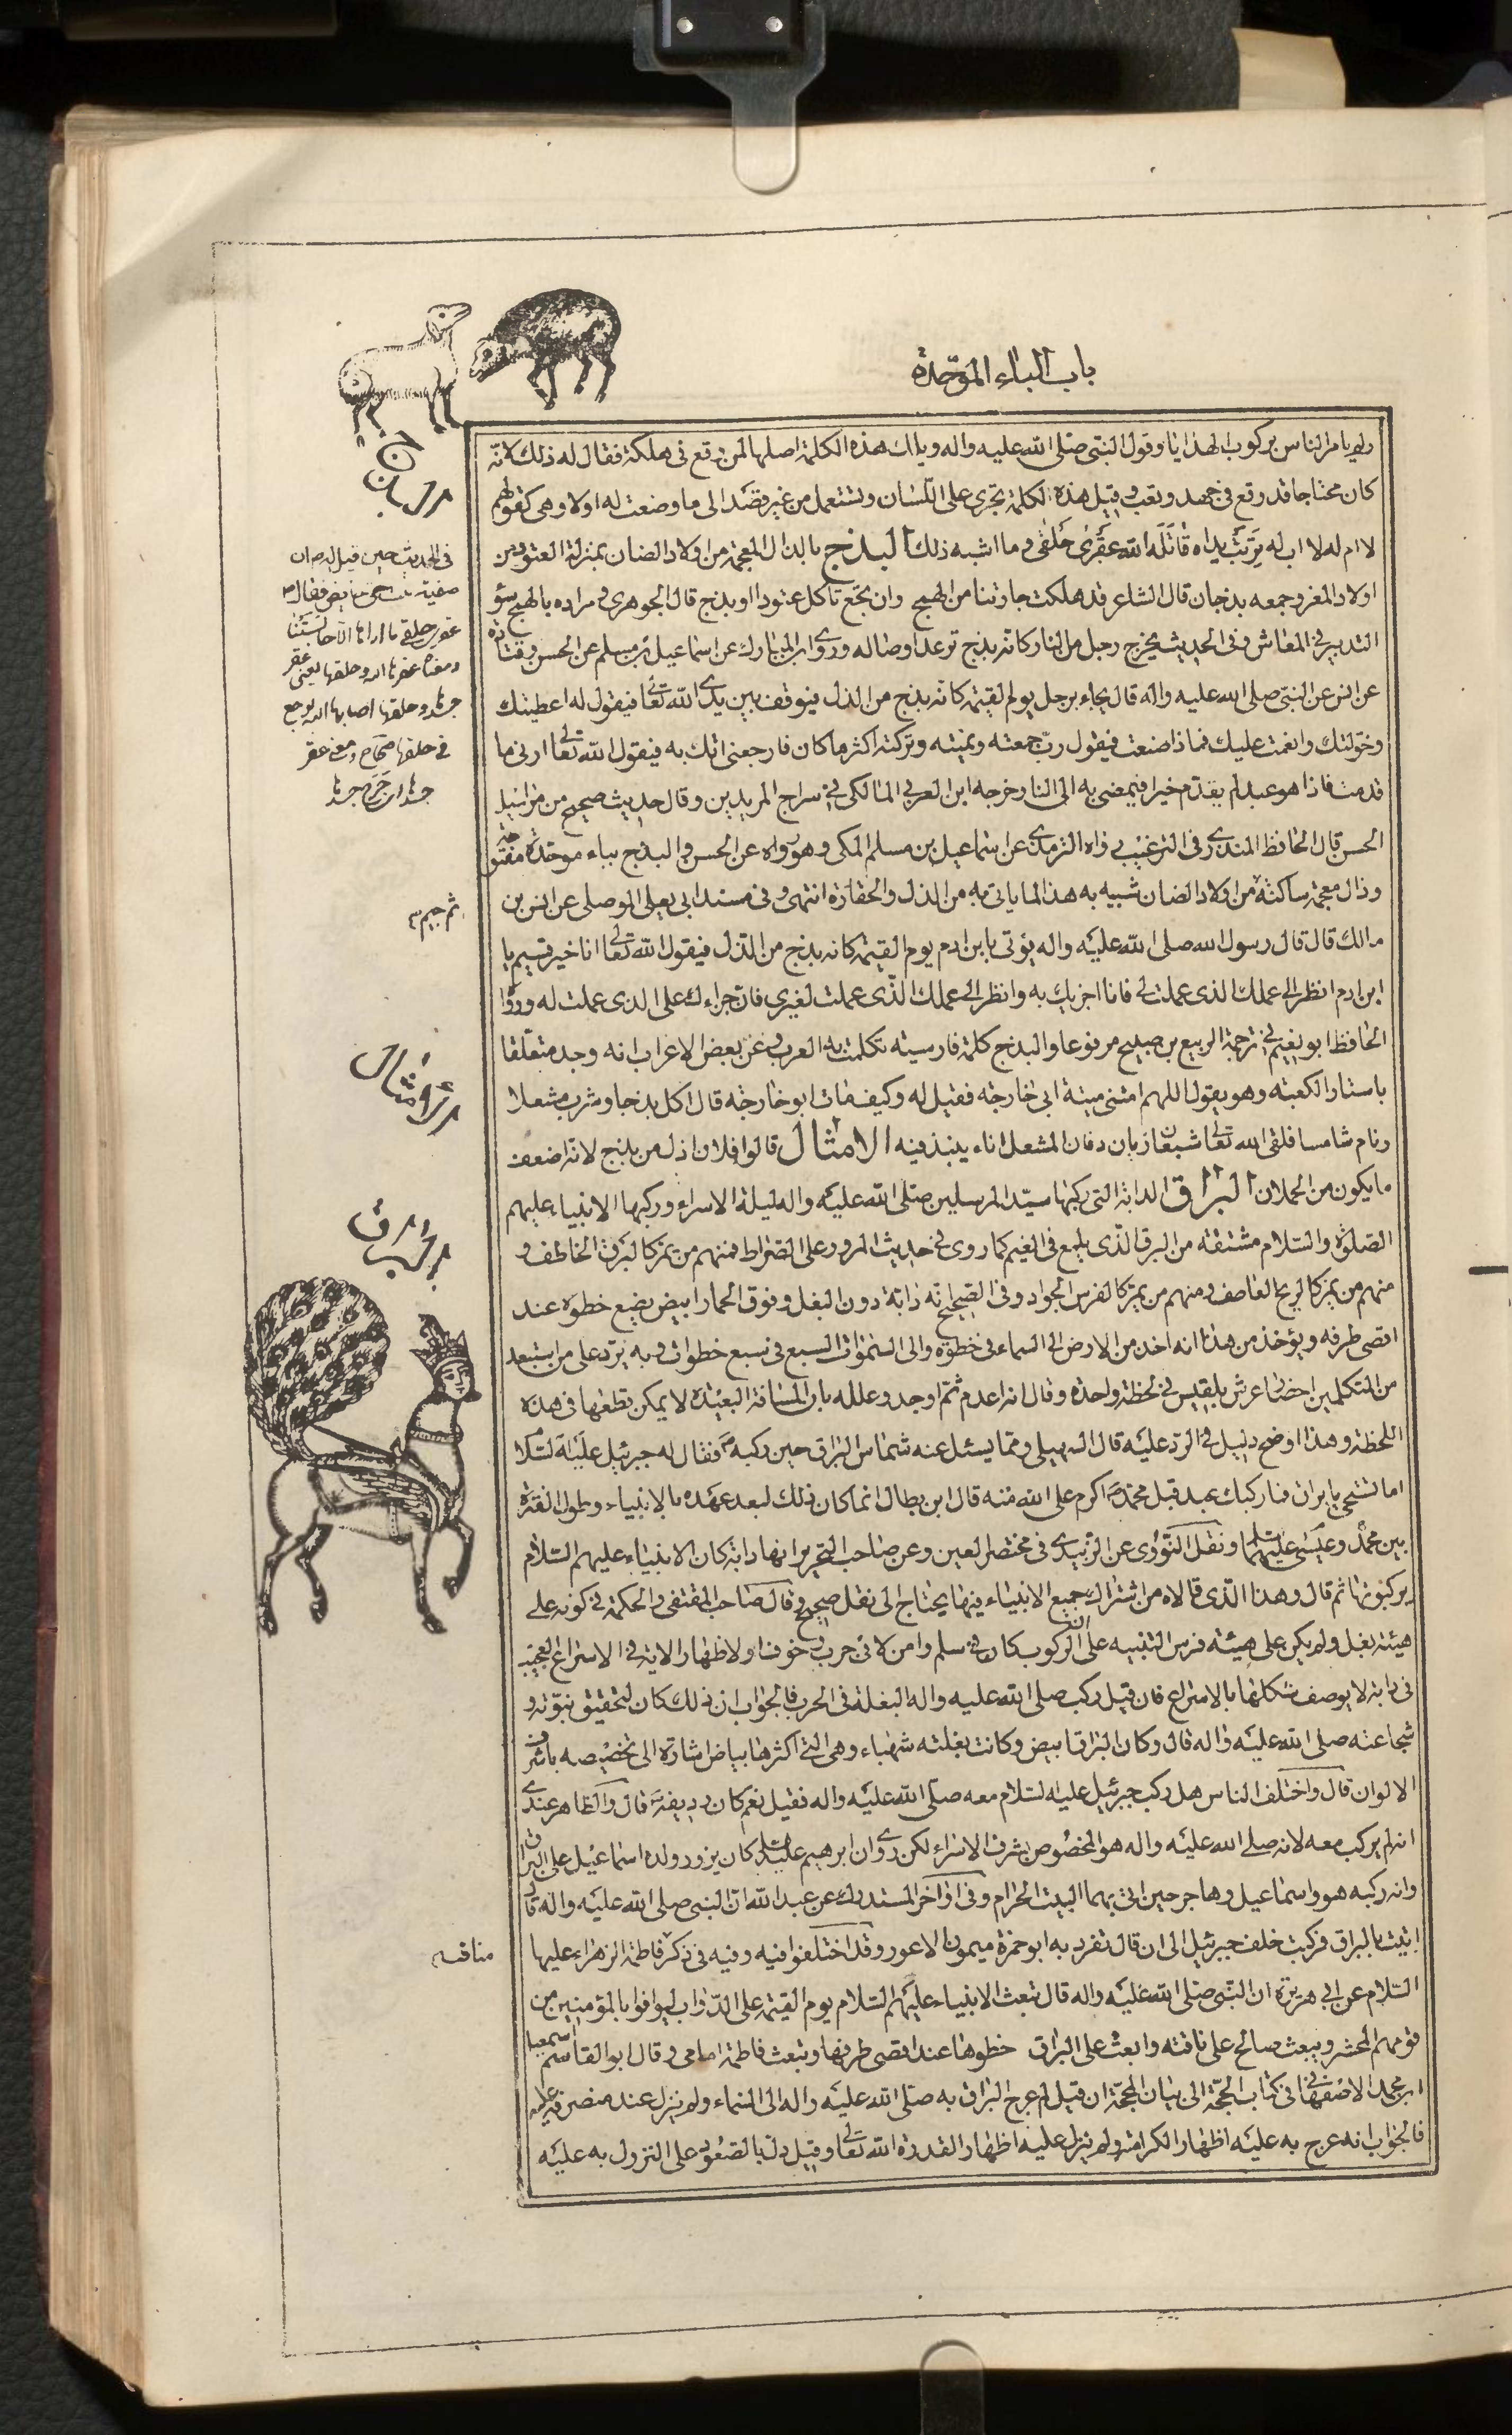 باب الباء الموحّدة
ولم يامر الناس بركوب الهدايا وقول النبى صلى الله عليه واله ويلك هذه الكلمة اصلها لمن وقع فى هلكة فقال له ذلك لانّه
كان محتاجا قد وقع فى جهد وتعب وقيل هذه الكلمة تجرى على اللّسان وتستعمل من غير قصد الى ما وضعت له اولا وهى كقولهم
لا ام له لا اب له تربت يداه قاتله الله عقرى حلقى وما اشبه ذلك البذج بالذال المعجمة من اولاد الضان بمنزلة العتود من
اولاد المعز وجمعه بذجان قال الشاعر قد هلكت جارتنا من الهمج وان تجع تاكل عتودا او بذج قال الجوهرى مراده بالهمج سؤ
التدبير فى المعاش وفى الحديث يخرج رجل من النار كانّه بذج ترعد اوصاله وروى ابن المبارك عن اسماعيل بن مسلم عن الحسن وقتادة
عن انس عن النبى صلى الله عليه واله قال يجاء برجل يوم القيمة كانّه بذج من الذل فيوقف بين يدى الله تعالى فيقول له اعطيتك
وخوّلتك وانعمت عليك فماذا صنعت فيقول ربّ جمعته ونميته وتركته اكثر ما كان فارجعنى اتك به فيقول الله تعالى ارنى ما
قدمت فاذا هو عبد لم يقدّم خيرا فيمضى به الى النار خرجه ابن العربى المالكى فى سراج المريدين وقال حديث صحيح من مراسيل
الحسن قال الحافظ المنذرى فى الترغيب رواه الترمذى عن اسماعيل بن مسلم المكى وهو رواه عن الحسن والبذج بباء موحّدة مفتوحة
وذال معجمة ساكنة من اولاد الضان شبيه به هذا لما ياتى به من الذل والحقارة انتهى وفى مسند ابى يعلى الموصلى عن انس بن
مالك قال قال رسول الله صلى الله عليه واله يؤتى بابن ادم يوم القيمة كانه بذج من الذل فيقول الله تعالى انا خير قسيم يا
ابن ادم انظر الى عملك الذى عملت لى فانا اجزيك به وانظر الى عملك الذى عملت لغيرى فان جزاءك على الذى عملت له ورواه
الحافظ ابو نعيم فى ترجمة الربيع بن صبيح مرفوعا والبذج كلمة فارسيته تكلمت به العرب وعن بعض الاعراب انه وجد متعلقا
باستار الكعبة وهو يقول اللهم امتنى ميتة ابى خارجه فقيل له وكيف مات ابو خارجه قال اكل بذجا وشرب مشعلا
ونام شامسا فلقى الله تعالى شبعان ريان دفان المشعل اناء ينبذ فيه الامثال قالوا فلان اذل من بذج لانّه اضعف
ما يكون من الحملان البراق الدابة التى ركبها سيّد المرسلين صلى الله عليه واله ليلة الاسراء وركبها الانبياء عليهم
الصلوة والسلام مشتقة من البرق الذى يلمع فى الغيم كما روى فى حديث المرور على الصراط فمنهم من يمر كالبرق الخاطف و
منهم من يمر كالريح العاصف ومنهم من يمر كالفرس الجواد وفى الصحيح انه دابة دون البغل وفوق الحمار ابيض يضع خطوه عند
اقصى طرفه ويؤخذ من هذا انه اخذ من الارض الى السماء فى خطوة والى السموات السبع فى سبع خطوات وبه يردّ على من استبعد
من المتكلمين احضار عرش بلقيس فى لحظة واحدة وقال انه اعدم ثم اوجد وعلله بان المسافة البعيدة لا يمكن قطعها فى هذه
اللحظة وهذا اوضح دليل فى الرد عليه قال السهيلى ومما يسئل عنه شماس البراق حين ركبه فقال له جبرئيل عليه السّلام
اما تستحى يا براق فما ركبك عبد قبل محمّد اكرم على الله منه قال ابن بطال انما كان ذلك لبعد عهده بالانبياء وطول الفترة
بين محمّد وعيسى عليهما السلام ونقل النووى عن الزبيدى فى مختصر العين وعن صاحب التحرير انها دابة كان الانبياء عليهم السّلام
يركبونها ثم قال وهذا الّذى قالاه من اشتراك جميع الانبياء فيها يحتاج الى نقل صحيح وقال صاحب المقتفى والحكمة فى كونه على
هيئة بغل ولم يكن على هيئة فرس التنبيه على ان الركوب كان فى سلم وامن لا فى حرب وخوف او لاظهار الاية فى الاسراع العجيب
فى دابة لا يوصف شكلها بالاسراع فان قيل ركب صلى الله عليه واله البغلة فى الحرب فالجواب ان ذلك كان لتحقيق نبوّته و
شجاعته صلى الله عليه واله قال وكان البراق ابيض وكانت بغلته شهباء وهى التى اكثرها بياض اشارة الى تخصيصه باشرف
الالوان قال واختلف الناس هل ركب جبرئيل عليه السّلام معه صلى الله عليه واله فقيل نعم كان رديفه قال والظاهر عندى
انه لم يركب معه لانه صلى الله عليه واله هو المخصوص بشرف الاسراء لكن روى ان ابرهيم عليه السلم كان يزور ولده اسماعيل على البراق
وانه ركبه هو واسماعيل وهاجر حين اتى بهما البيت الحرام وفى اواخر المستدرك عن عبد الله ان النبى صلى الله عليه واله قال
اتيت بالبراق فركبت خلف جبرئيل الى ان قال تفرد به ابو حمزة ميمون الاعور وقد اختلفوا فيه وفيه فى ذكر فاطمة الزهراء عليها
السّلام عن ابى هريرة ان النبى صلى الله عليه واله قال تبعث الانبياء عليهم السّلام يوم القيمة على الدّواب ليوافوا بالمؤمنين من
قومهم المحشر ويبعث صالح على ناقته وابعث على البراق خطوها عند اقصى طرفها وتبعث فاطمة امامى وقال ابو القاسم اسمعيل
ابن محمد الاصفهانى فى كتاب الحجّة الى بيان المحجّة ان قيل لم عرج البراق به صلى الله عليه واله الى السماء ولم ينزل عند منصرفه عليه
فالجواب انه عرج به عليه اظهارا لكرامته ولم ينزل عليه اظهارا لقدرة الله تعالى وقيل دل بالصعود على النزول به عليه
البذج
فى الحديث حين قيل له ان
صفية بنت حيى حايض فقال
عقرى حلقى ما اراها الا حابستنا
ومعناه عقرها الله وحلقها يعنى عقر
جسدها وحلقها اصابها الله بوجع
فى حلقها صحاح ومعنى عقر
جسدها اى جرح جسدها
ثم جيم
الامثال
البراق
مناقب